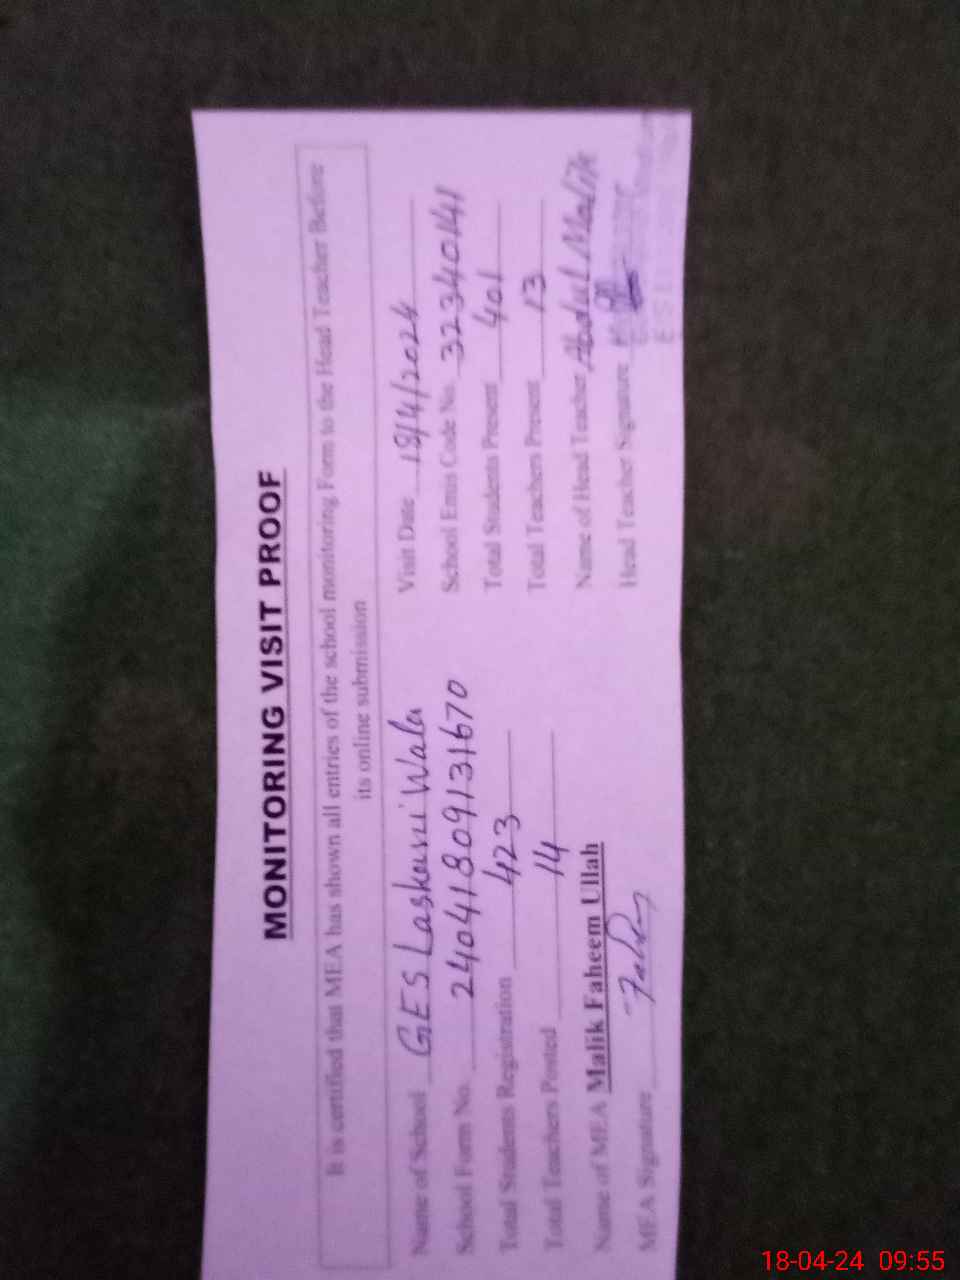 MONITORING VISIT PROOF
It is certified that MEA has shown all entries of the school monitoring Form to the Head Teacher Before
its online submission
Name of School GES Laskani Wala
Visit Date 18/4/2024
School Form No. 24041809131670
School Emis Code No. 32340141
Total Students Registration 423
Total Students Present 401
Total Teachers Posted 14
Total Teachers Present 13
Name of MEA Malik Faheem Ullah
Name of Head Teacher Abdul Malik
MEA Signature
Head Teacher Signature
18-04-24 09:55